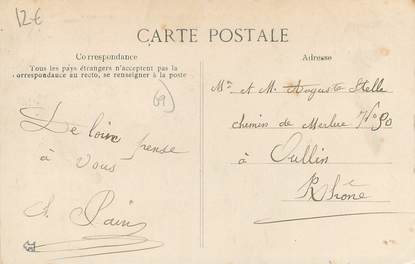 12-€
CARTE POSTALE
Correspondance
Tous les pays étrangers n'acceptent pas la
correspondance au recto, se renseigner à la poste
69
De loin pense
à vous
Adresse
et M. Auguste Stella
chemin de Merlue No 90
à Oullin
Rhône